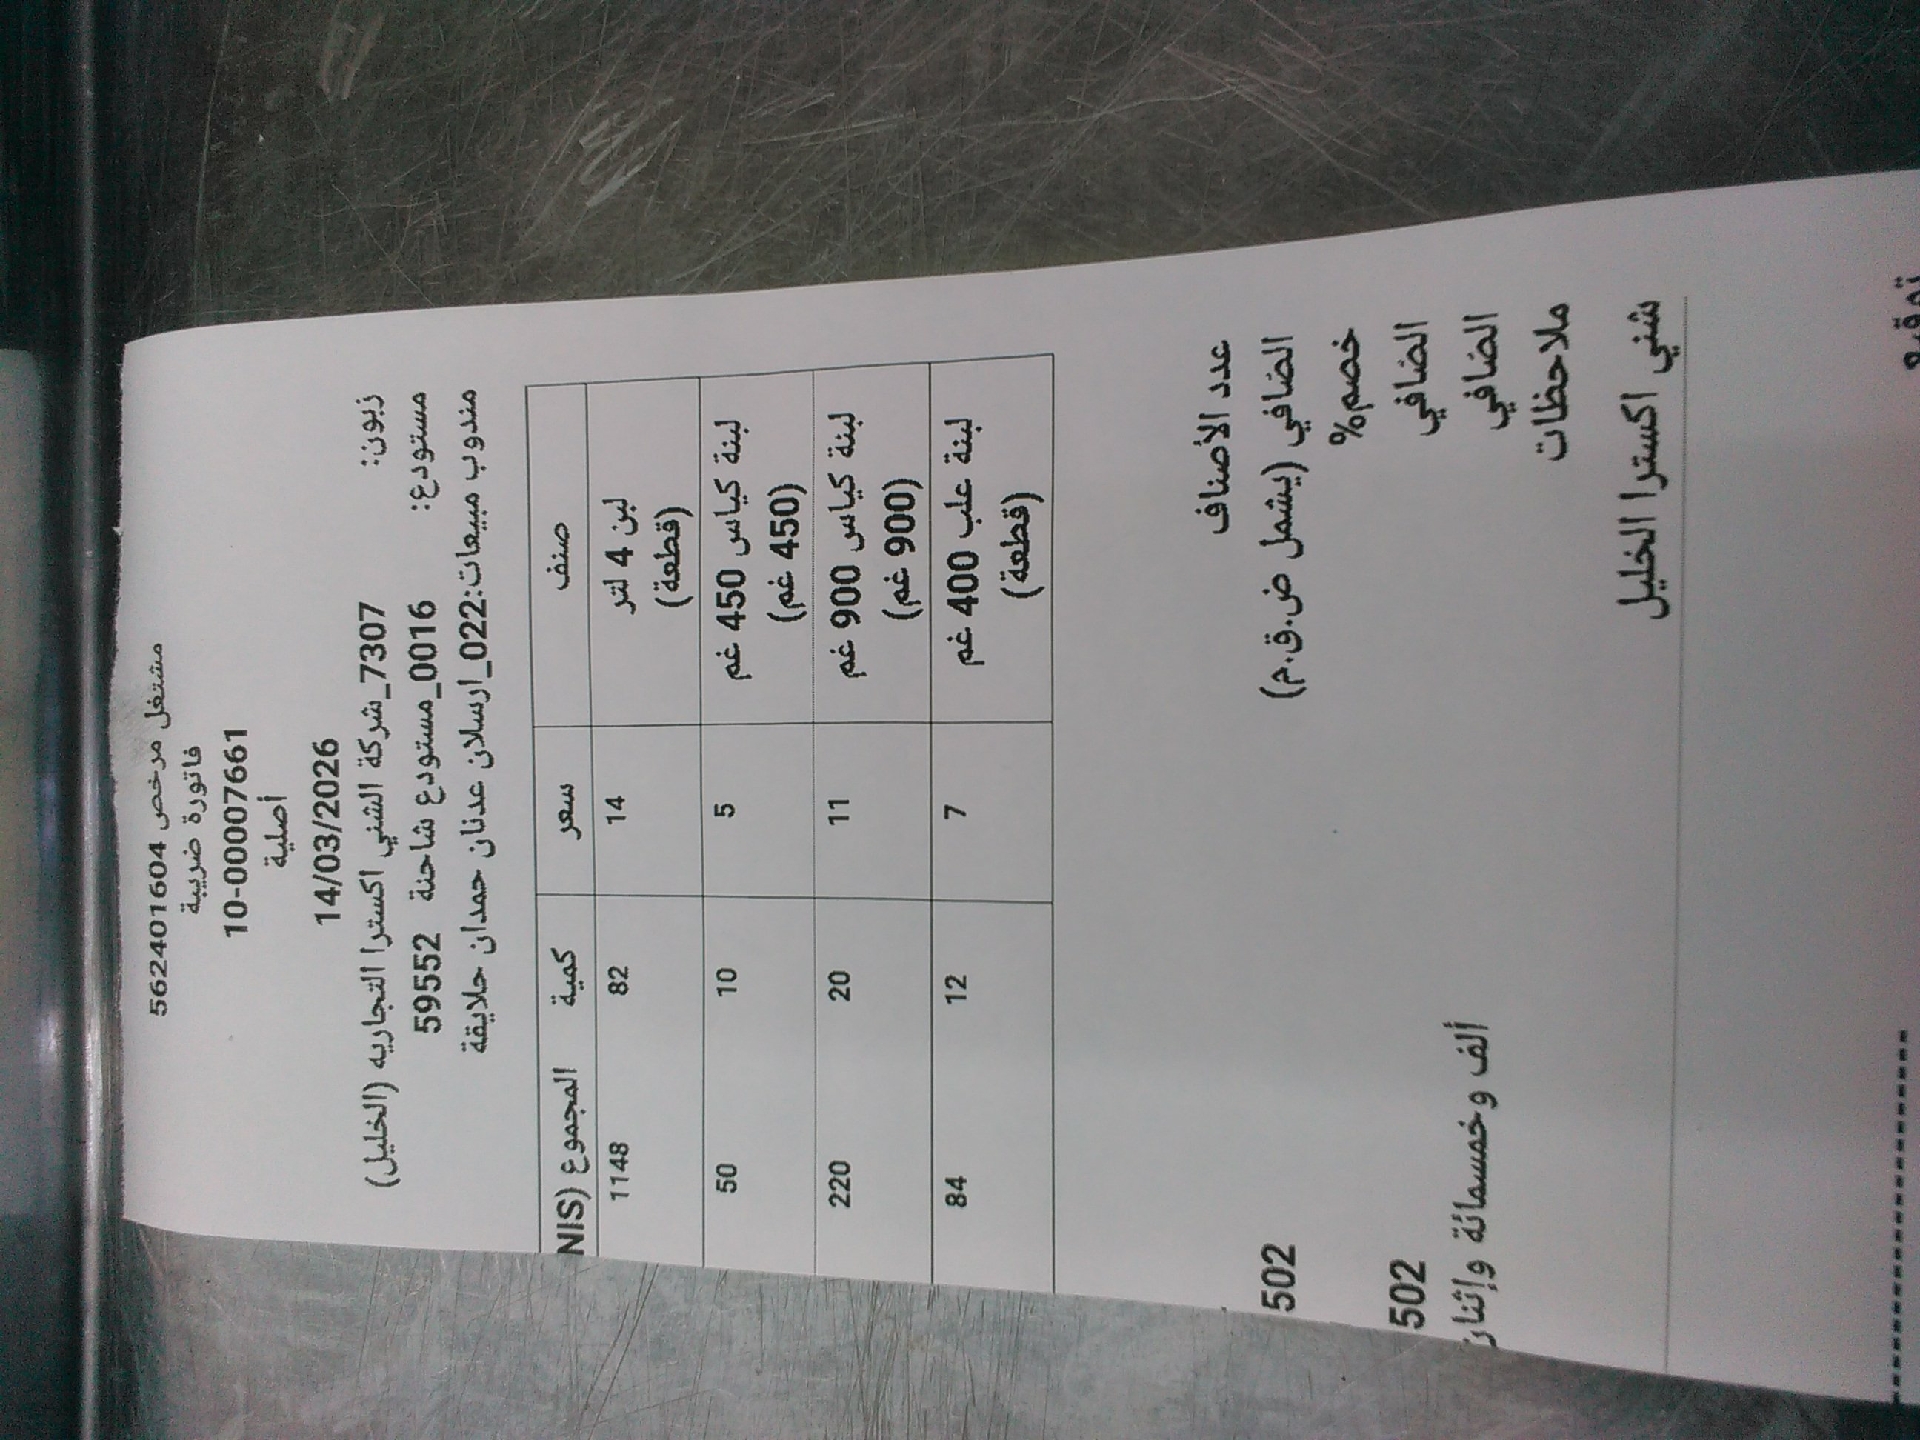 مشتغل مرخص 562401604
فاتورة ضريبة
10-00007661
أصلية
14/03/2026
زبون: 7307_شركة الشني اكسترا التجاريه (الخليل)
مستودع: 0016_مستودع شاحنة 59552
مندوب مبيعات:022_ارسلان عدنان حمدان حلايقة
صنف سعر كمية المجموع (NIS
لبن 4 لتر (قطعة) 14 82 1148
لبنة كياس 450 غم (450 غم) 5 10 50
لبنة كياس 900 غم (900 غم) 11 20 220
لبنة علب 400 غم (قطعة) 7 12 84
عدد الأصناف
الصافي (يشمل ض.ق.م) 502
خصم%
الصافي 502
الصافي ألف وخمسمائة وإثنان
ملاحظات
شني اكسترا الخليل